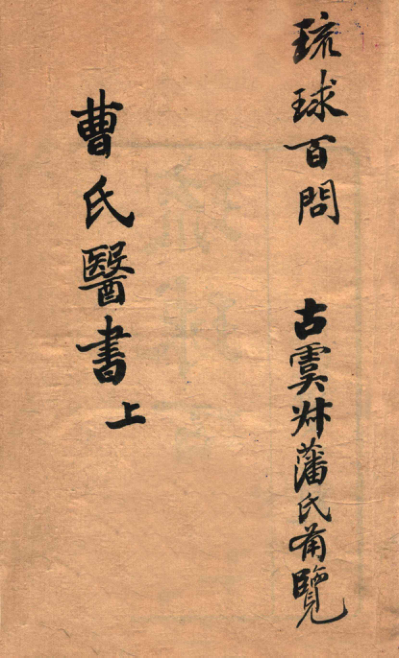 琉球百問
古虞
藩氏
覽
曹氏醫書
上